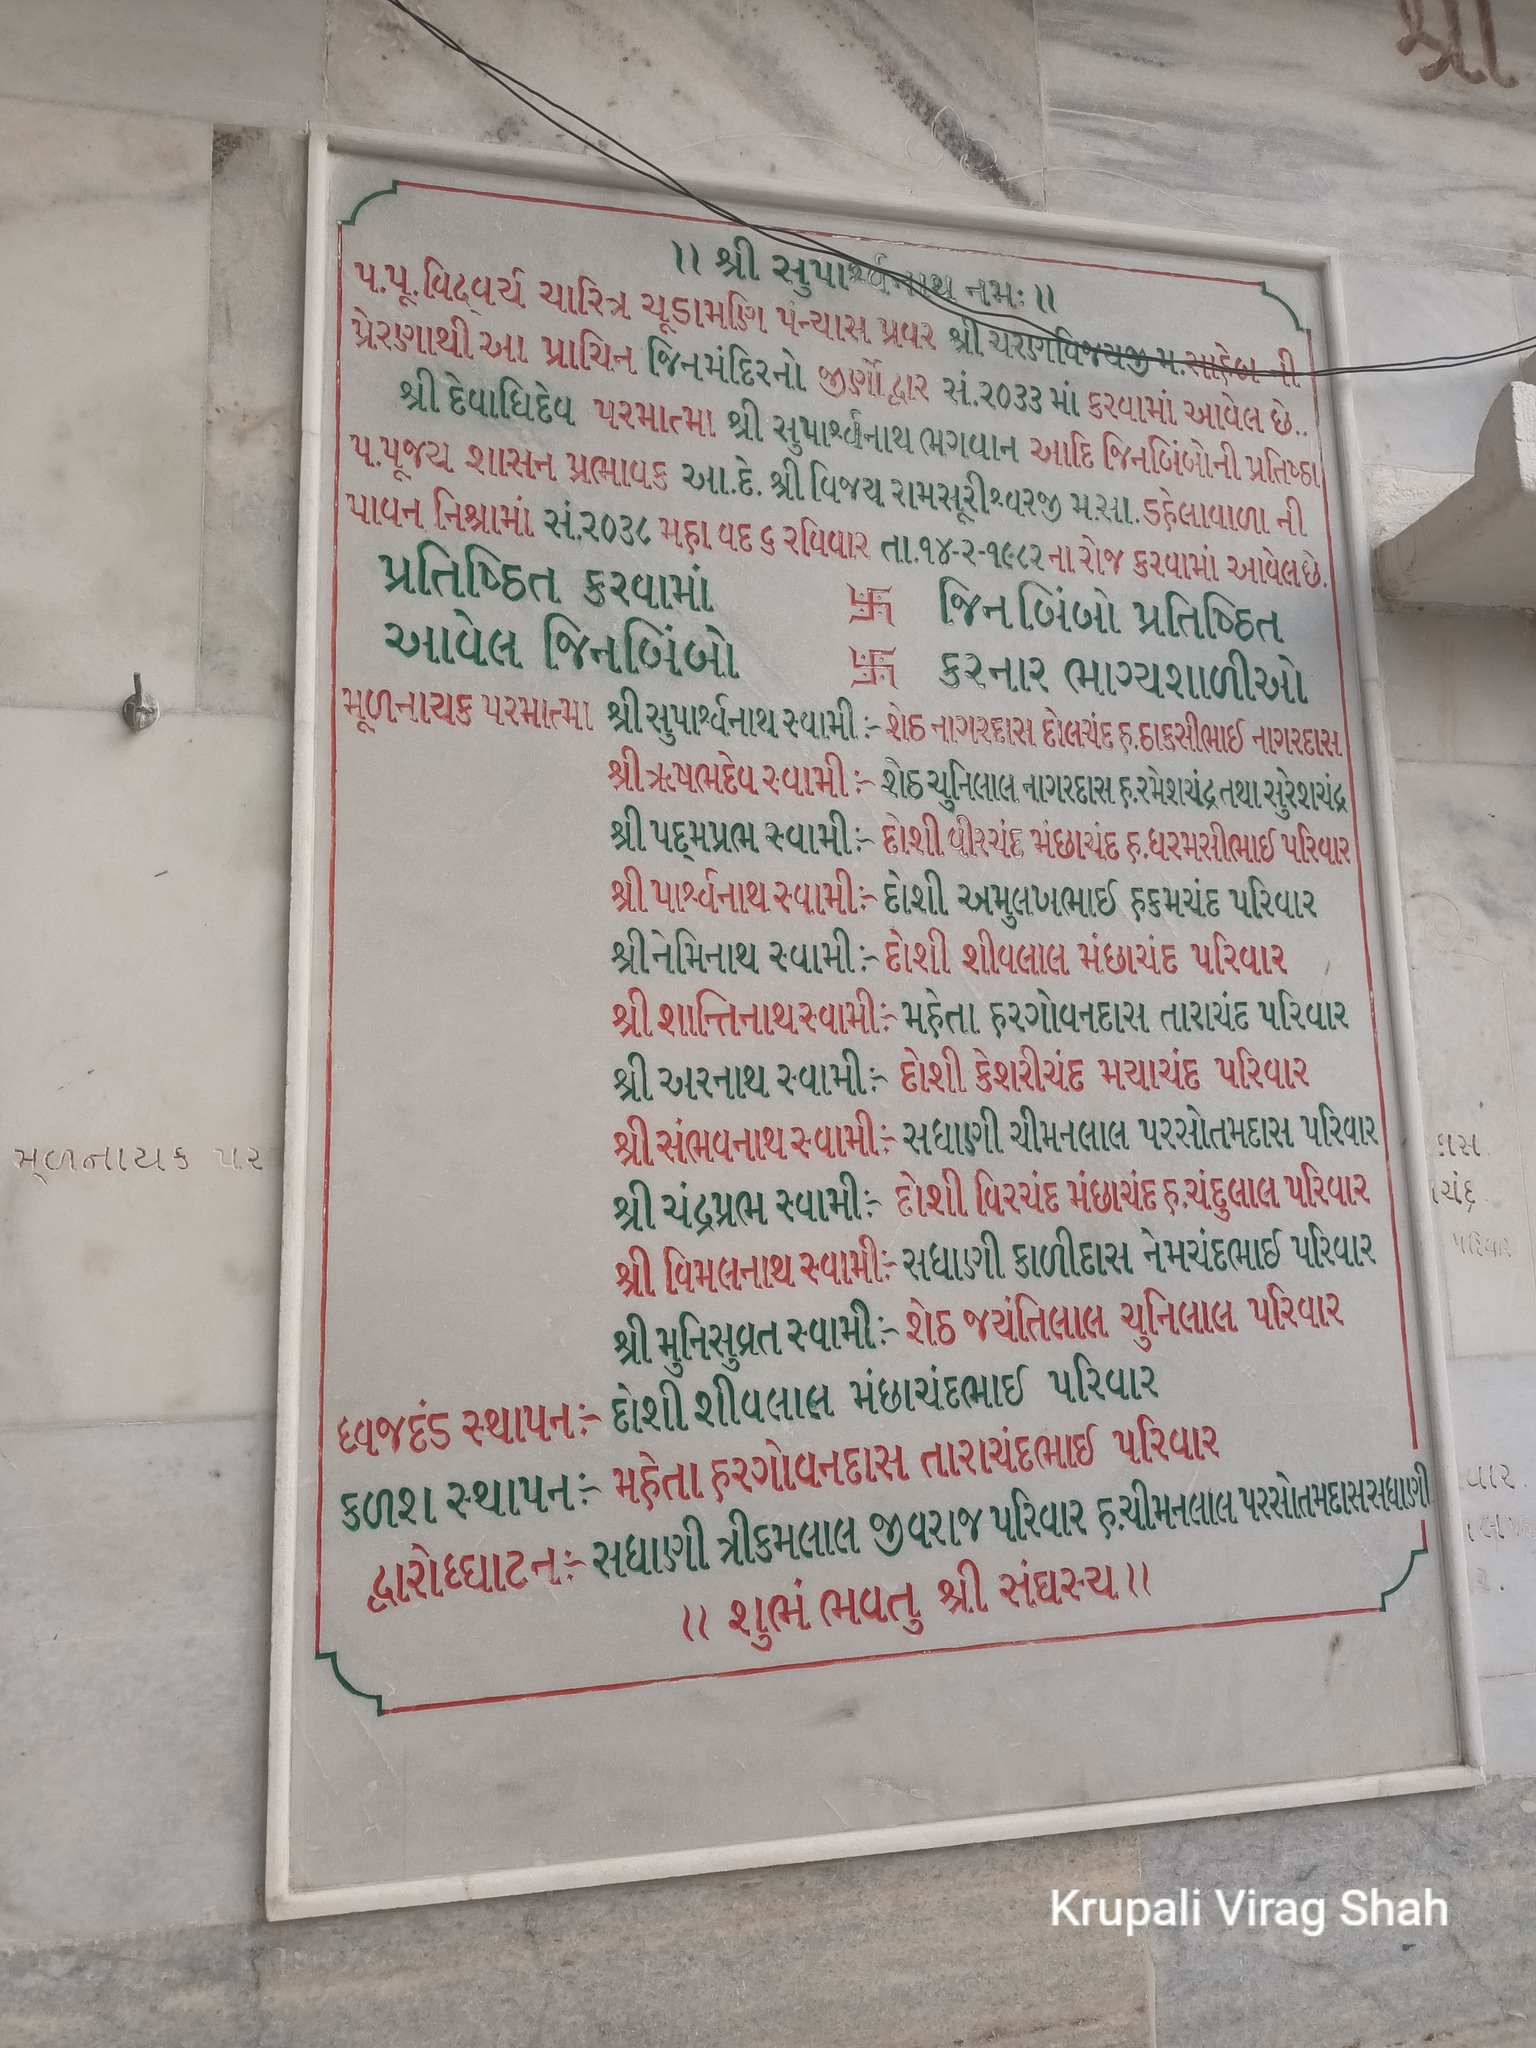 શ્રી
।। શ્રી સુપાર્શ્વનાથ નમઃ ।।
પ.પૂ.વિદ્વર્ય ચારિત્ર ચૂડામણિ પંન્યાસ પ્રવર શ્રી ચરણવિજયજી મ.સાહેબ ની
પ્રેરણાથી આ પ્રાચિન જિનમંદિરનો જીર્ણોદ્ધાર સં.૨૦૩૩ માં કરવામાં આવેલ છે..
શ્રી દેવાધિદેવ પરમાત્મા શ્રી સુપાર્શ્વનાથ ભગવાન આદિ જિનબિંબોની પ્રતિષ્ઠા
પ.પૂજ્ય શાસન પ્રભાવક આ.દે. શ્રી વિજય રામસૂરીશ્વરજી મ.સા. ડહેલાવાળા ની
પાવન નિશ્રામાં સં.૨૦૩૮ મહા વદ ૬ રવિવાર તા.૧૪-૨-૧૯૮૨ ના રોજ કરવામાં આવેલ છે.
પ્રતિષ્ઠિત કરવામાં 卐 જિનબિંબો પ્રતિષ્ઠિત
આવેલ જિનબિંબો 卐 કરનાર ભાગ્યશાળીઓ
મૂળનાયક પરમાત્મા શ્રી સુપાર્શ્વનાથ સ્વામી :- શેઠ નાગરદાસ દોલચંદ હ.ઠાકસીભાઈ નાગરદાસ
શ્રી ઋષભદેવ સ્વામી :- શેઠ ચુનિલાલ નાગરદાસ હ.રમેશચંદ્ર તથા સુરેશચંદ્ર
શ્રી પદ્મપ્રભ સ્વામી :- દોશી વીરચંદ મંછાચંદ હ.ધરમસીભાઈ પરિવાર
શ્રી પાર્શ્વનાથ સ્વામી :- દોશી અમુલખભાઈ હકમચંદ પરિવાર
શ્રી નેમિનાથ સ્વામી :- દોશી શીવલાલ મંછાચંદ પરિવાર
શ્રી શાન્તિનાથ સ્વામી :- મહેતા હરગોવનદાસ તારાચંદ પરિવાર
શ્રી અરનાથ સ્વામી :- દોશી કેશરીચંદ મયાચંદ પરિવાર
શ્રી સંભવનાથ સ્વામી :- સધાણી ચીમનલાલ પરસોતમદાસ પરિવાર
શ્રી ચંદ્રપ્રભ સ્વામી :- દોશી વિરચંદ મંછાચંદ હ.ચંદુલાલ પરિવાર
શ્રી વિમલનાથ સ્વામી :- સધાણી કાળીદાસ નેમચંદભાઈ પરિવાર
શ્રી મુનિસુવ્રત સ્વામી :- શેઠ જયંતિલાલ ચુનિલાલ પરિવાર
ધ્વજદંડ સ્થાપન :- દોશી શીવલાલ મંછાચંદભાઈ પરિવાર
કળશ સ્થાપન :- મહેતા હરગોવનદાસ તારાચંદભાઈ પરિવાર
દ્વારોદ્ઘાટન :- સધાણી ત્રીકમલાલ જીવરાજ પરિવાર હ.ચીમનલાલ પરસોતમદાસ સધાણી
।। શુભં ભવતુ શ્રી સંઘસ્ય ।।
મૂળનાયક પર
Krupali Virag Shah